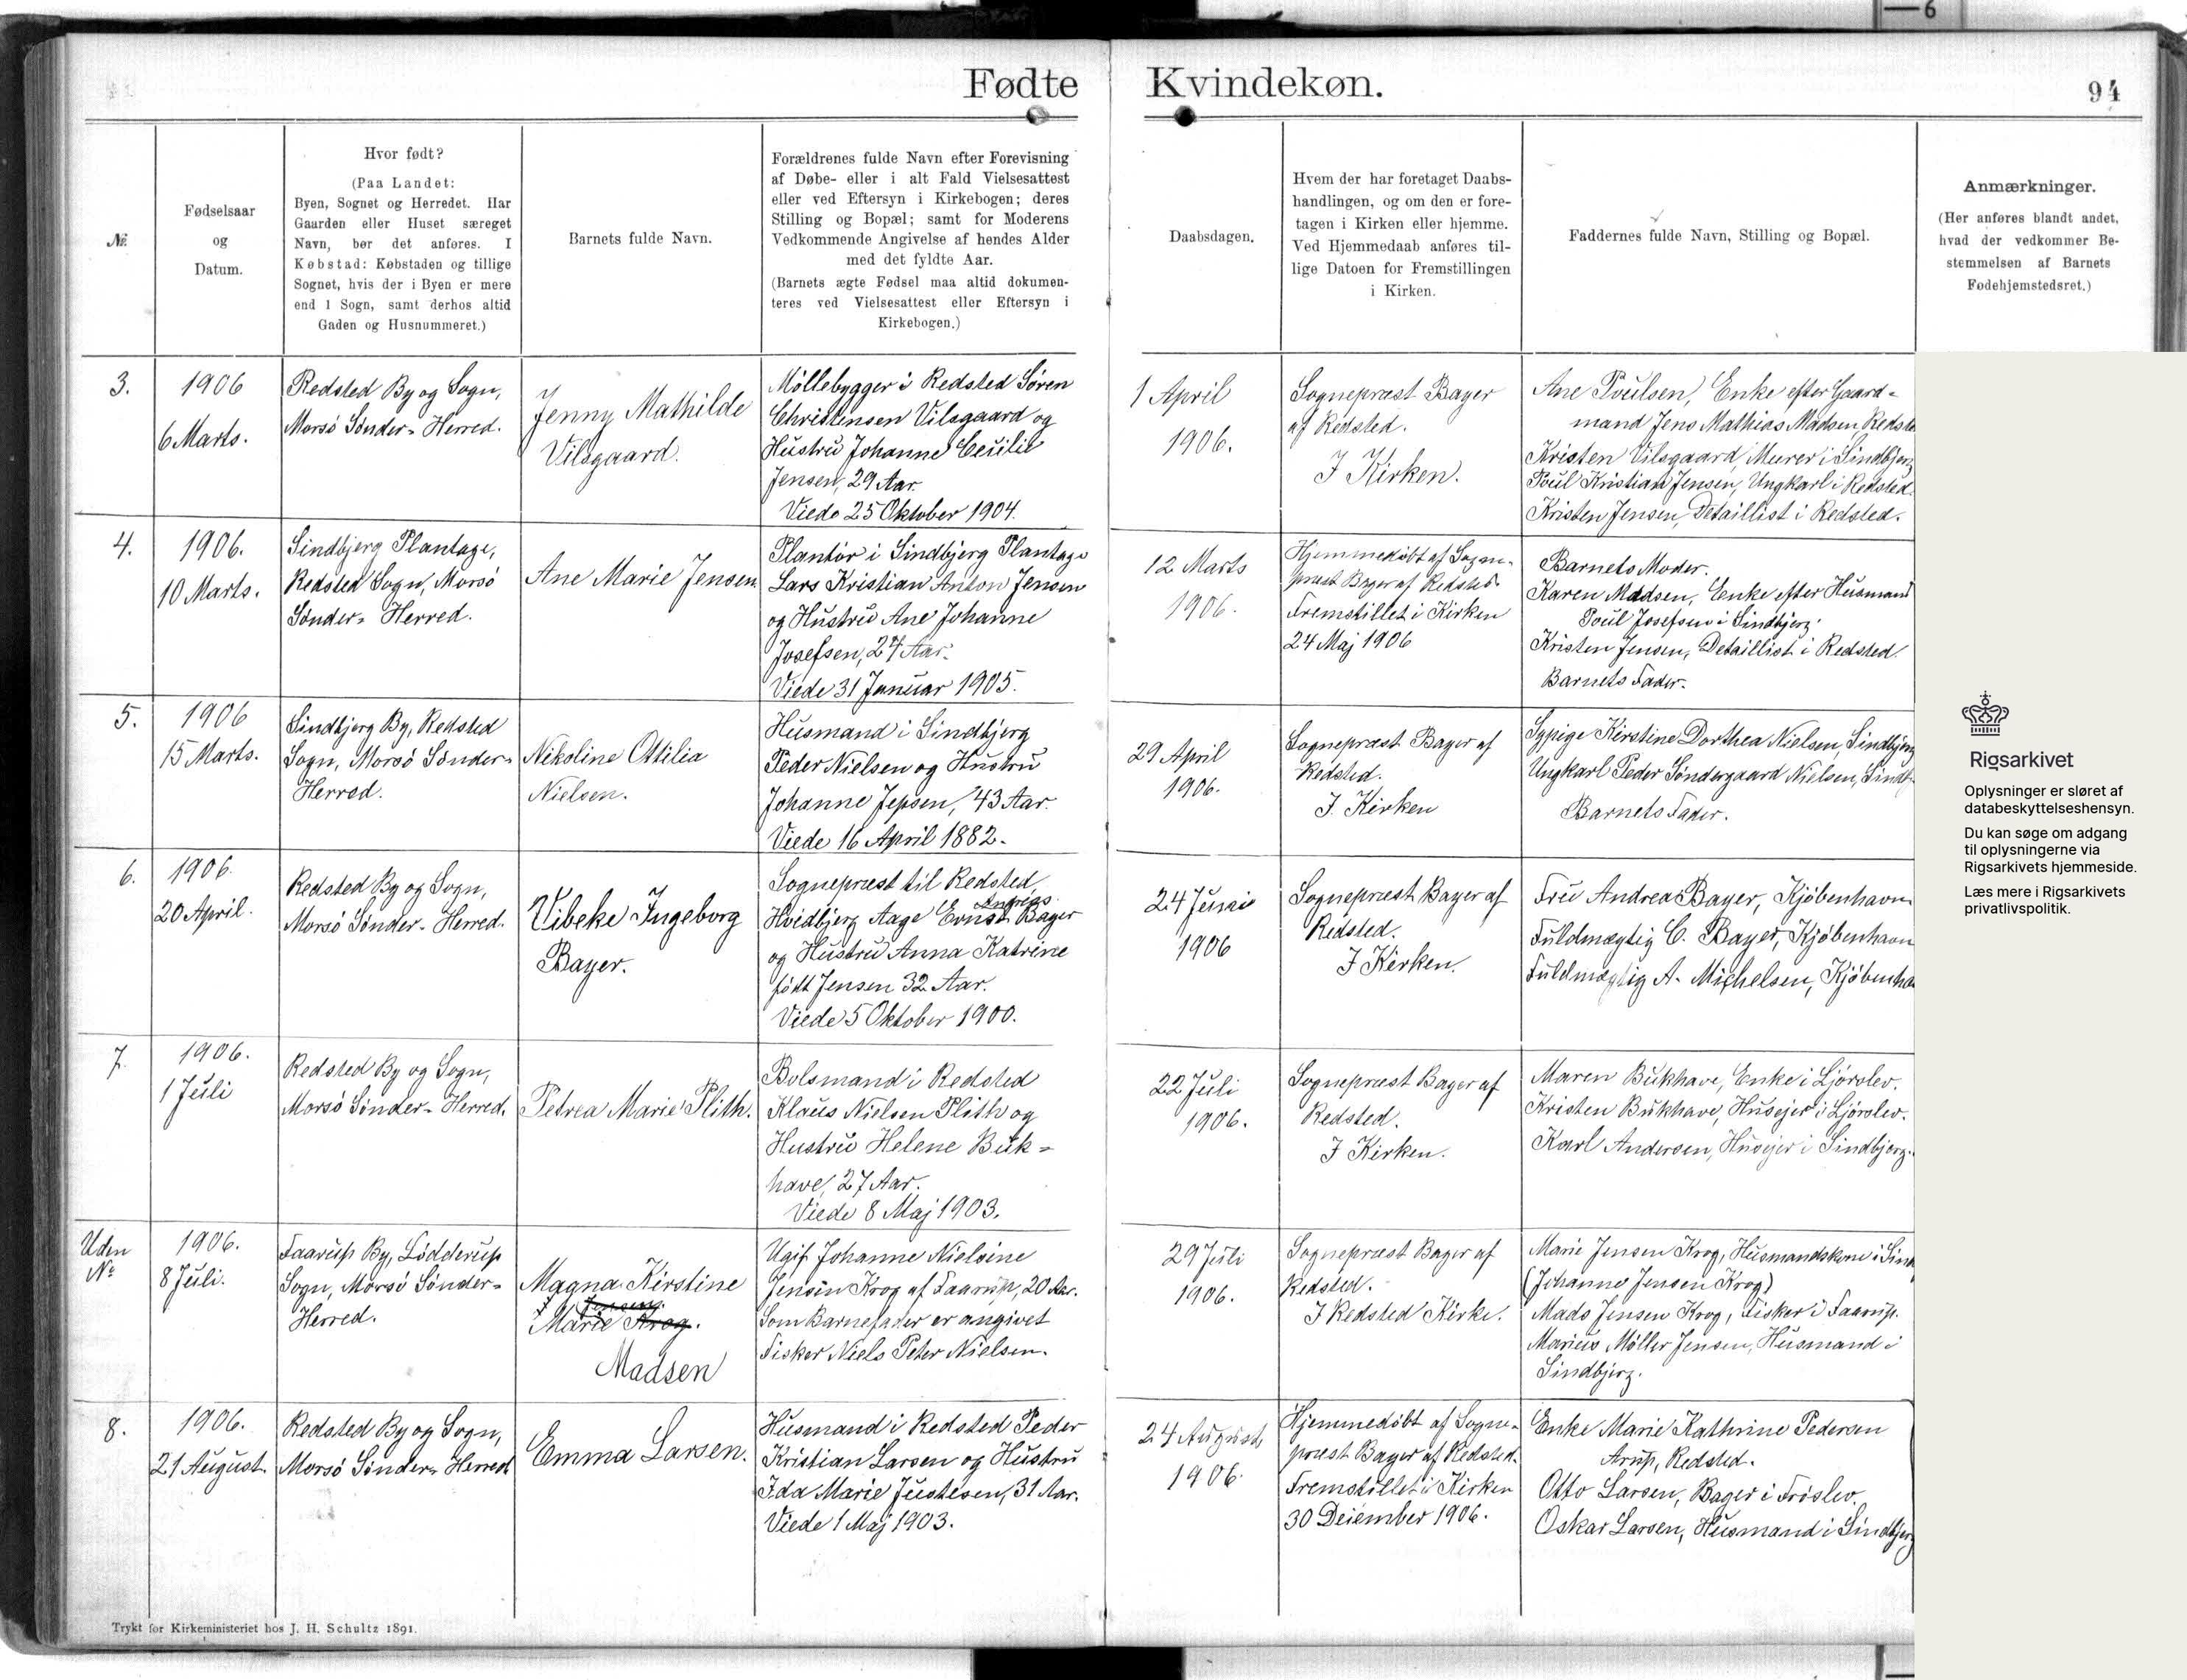 6
Fødte Kvindekøn.
94
№
Fødselsaar
og
Datum.
Hvor født?
(Paa Landet:
Byen, Sognet og Herredet. Har
Gaarden eller Huset særeget
Navn, bør det anføres. I
Købstad: Købstaden og tillige
Sognet, hvis der i Byen er mere
end 1 Sogn, samt derhos altid
Gaden og Husnummeret.)
Barnets fulde Navn.
Forældrenes fulde Navn efter Forevisning
af Døbe- eller i alt Fald Vielsesattest
eller ved Eftersyn i Kirkebogen; deres
Stilling og Bopæl; samt for Moderens
Vedkommende Angivelse af hendes Alder
med det fyldte Aar.
(Barnets ægte Fødsel maa altid dokumen-
teres ved Vielsesattest eller Eftersyn i
Kirkebogen.)
Daabsdagen.
Hvem der har foretaget Daabs-
handlingen, og om den er fore-
tagen i Kirken eller hjemme.
Ved Hjemmedaab anføres til-
lige Datoen for Fremstillingen
i Kirken.
Faddernes fulde Navn, Stilling og Bopæl.
Anmærkninger.
(Her anføres blandt andet,
hvad der vedkommer Be-
stemmelsen af Barnets
Fødehjemstedsret.)
3.
1906
6 Marts.
Redsted By og Sogn,
Morsö Sönder- Herred.
Jenny Mathilde
Vilsgaard.
Möllebygger i Redsted Sören
Christensen Vilsgaard og
Hustru Johanne Cecilie
Jensen, 29 Aar.
Viede 25 Oktober 1904.
1 April
1906.
Sognepræst Bayer
af Redsted.
I Kirken.
Ane Poulsen, Enke efter Gaard-
mand Jens Mathias Madsen, Redste
Kristen Vilsgaard, Murer i Sindbjerg
Poul Kristian Jensen, Ungkarl i Redsted.
Kristen Jensen, Detaillist i Redsted.
4.
1906.
10 Marts.
Sindbjerg Plantage,
Redsted Sogn, Morsö
Sönder- Herred.
Ane Marie Jensen
Plantör i Sindbjerg Plantage
Lars Kristian Anton Jensen
og Hustru Ane Johanne
Josefsen, 27 Aar.
Viede 31 Januar 1905.
12 Marts
1906.
Hjemmedöbt af Sogne-
præst Bayer af Redsted.
Fremstillet i Kirken
24 Maj 1906
Barnets Moder.
Karen Madsen, Enke efter Husmand
Poul Josefsen i Sindbjerg.
Kristen Jensen, Detaillist i Redsted.
Barnets Fader.
5.
1906
15 Marts.
Sindbjerg By, Redsted
Sogn, Morsö Sönder-
Herred.
Nikoline Ottilia
Nielsen.
Husmand i Sindbjerg
Peder Nielsen og Hustru
Johanne Jepsen, 43 Aar.
Viede 16 April 1882.
29 April
1906.
Sognepræst Bayer af
Redsted.
I Kirken
Sypige Kirstine Dorthea Nielsen, Sindbjerg
Ungkarl Peder Söndergaard Nielsen, Sindb
Barnets Fader.
6.
1906.
20 April.
Redsted By og Sogn,
Morsö Sönder- Herred.
Vibeke Ingeborg
Bayer.
Sognepræst til Redsted,
Andreas
Hvidbjerg Aage Ernst Bayer
og Hustru Anna Katrine
födt Jensen 32 Aar.
Viede 5 Oktober 1900.
24 Juni
1906
Sognepræst Bayer af
Redsted.
I Kirken.
Fru Andrea Bayer, Kjöbenhavn
Fuldmægtig C. Bayer, Kjöbenhavn
Fuldmægtig A. Michelsen, Kjöbenha
7.
1906.
1 Juli
Redsted By og Sogn,
Morsö Sönder- Herred.
Petrea Marie Plith.
Bolsmand i Redsted
Klaus Nielsen Plith og
Hustru Helene Buk-
have, 27 Aar.
Viede 8 Maj 1903.
22 Juli
1906.
Sognepræst Bayer af
Redsted.
I Kirken.
Maren Bukhave, Enke i Ljörslev.
Kristen Bukhave, Husejer i Ljörslev.
Karl Andersen, Husejer i Sindbjerg.
Uden
№
1906.
8 Juli.
Faarup By, Lödderup
Sogn, Morsö Sönder-
Herred.
Magna Kirstine
Jensen
Marie Krog.
Madsen
Ugif. Johanne Nielsine
Jensen Krog af Faarup, 20 Aar.
Som Barnefader er angivet
Fisker Niels Peter Nielsen.
29 Juli
1906.
Sognepræst Bayer af
Redsted.
I Redsted Kirke.
Marie Jensen Krog, Husmandskone i Sind
(Johanne Jensen Krog)
Mads Jensen Krog, Fisker i Faarup.
Marius Möller Jensen, Husmand i
Sindbjerg.
8.
1906.
21 August.
Redsted By og Sogn,
Morsö Sönder- Herred
Emma Larsen.
Husmand i Redsted Peder
Kristian Larsen og Hustru
Ida Marie Justesen, 31 Aar.
Viede 1 Maj 1903.
24 August
1906.
Hjemmedöbt af Sogne-
præst Bayer af Redsted.
Fremstillet i Kirken
30 December 1906.
Enke Marie Kathrine Pedersen
Arup, Redsted.
Otto Larsen, Bager i Fröslev.
Oskar Larsen, Husmand i Sindbjerg
Trykt for Kirkeministeriet hos J. H. Schultz 1891.
Rigsarkivet
Oplysninger er sløret af
databeskyttelseshensyn.
Du kan søge om adgang
til oplysningerne via
Rigsarkivets hjemmeside.
Læs mere i Rigsarkivets
privatlivspolitik.